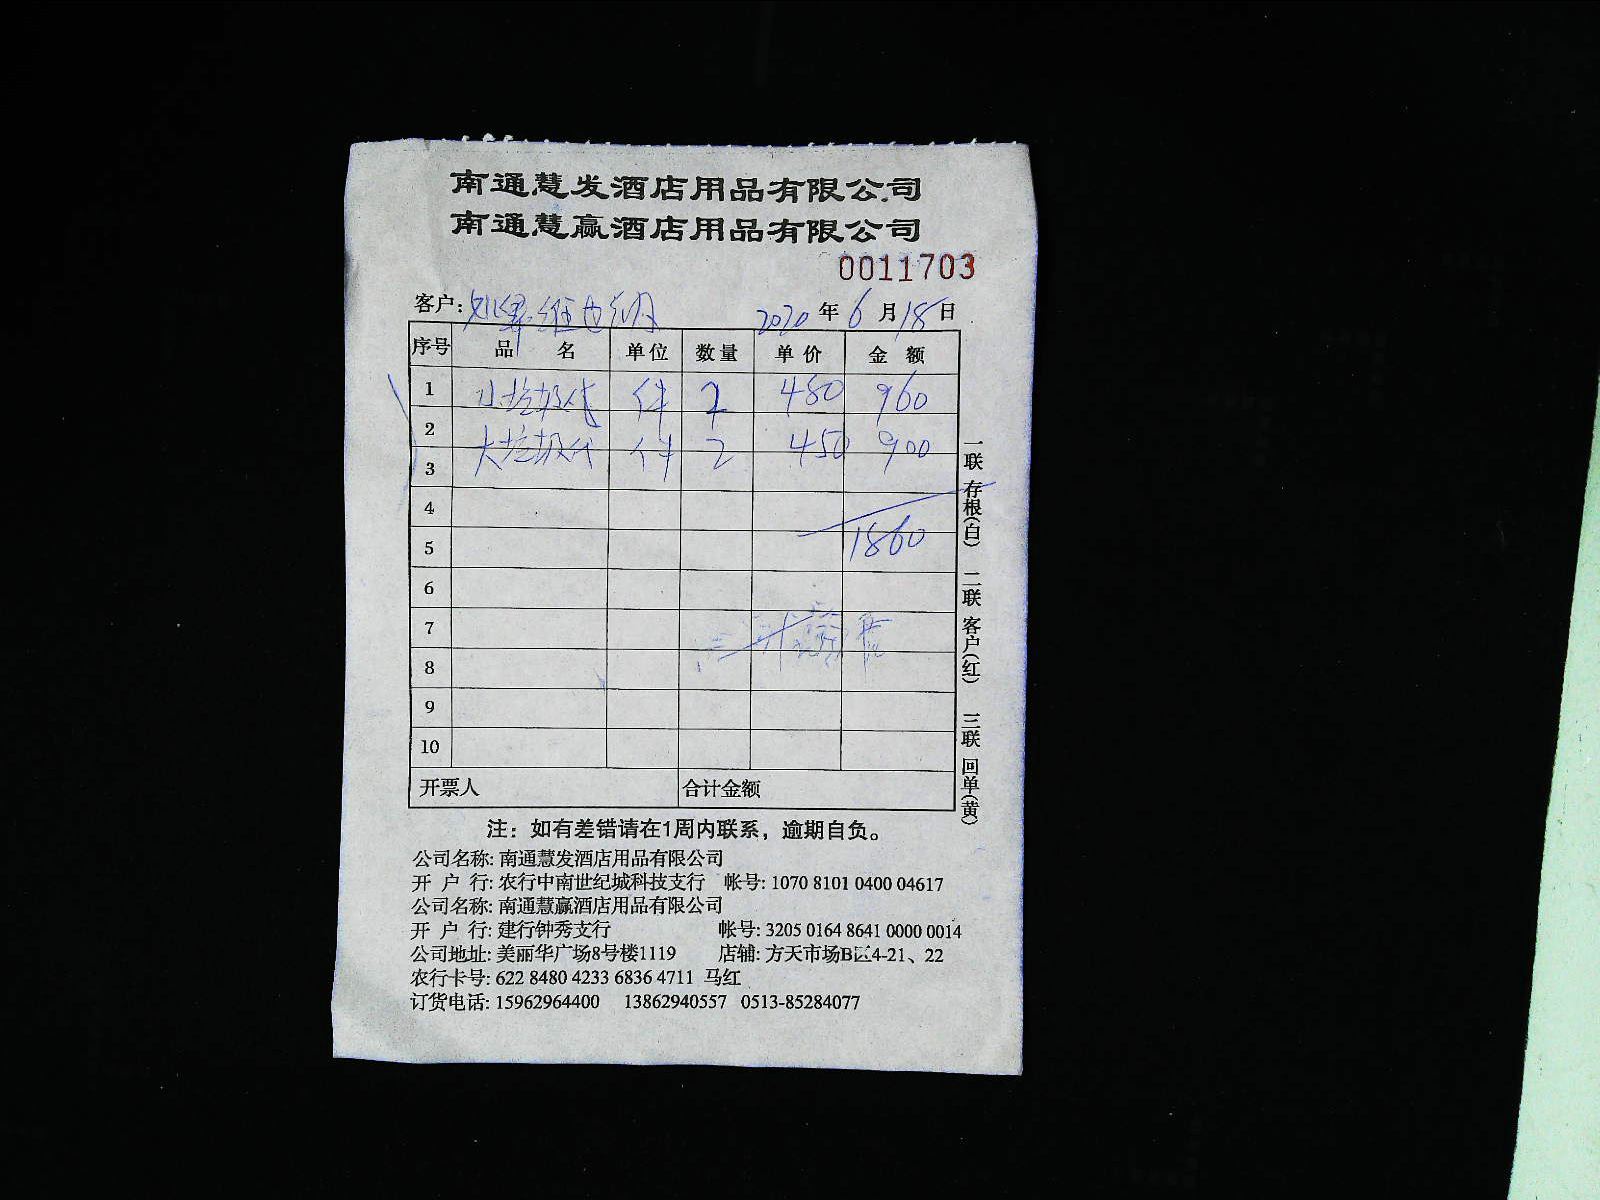 南通慧发酒店用品有限公司
南通慧赢酒店用品有限公司
0011703
客户: 如皋维也纳 2020 年 6 月 18 日
序号 品 名 单位 数量 单价 金 额
1 小垃圾代 件 2 480 960
2 大垃圾代 件 2 450 900
3
4
5 1860
6
7
8
9
10
开票人 合计金额
一联 存根(白) 二联 客户(红) 三联 回单(黄)
注：如有差错请在1周内联系，逾期自负。
公司名称: 南通慧发酒店用品有限公司
开 户 行: 农行中南世纪城科技支行 帐号: 1070 8101 0400 04617
公司名称: 南通慧赢酒店用品有限公司
开 户 行: 建行钟秀支行 帐号: 3205 0164 8641 0000 0014
公司地址: 美丽华广场8号楼1119 店铺: 方天市场B区4-21、22
农行卡号: 622 8480 4233 6836 4711 马红
订货电话: 15962964400 13862940557 0513-85284077